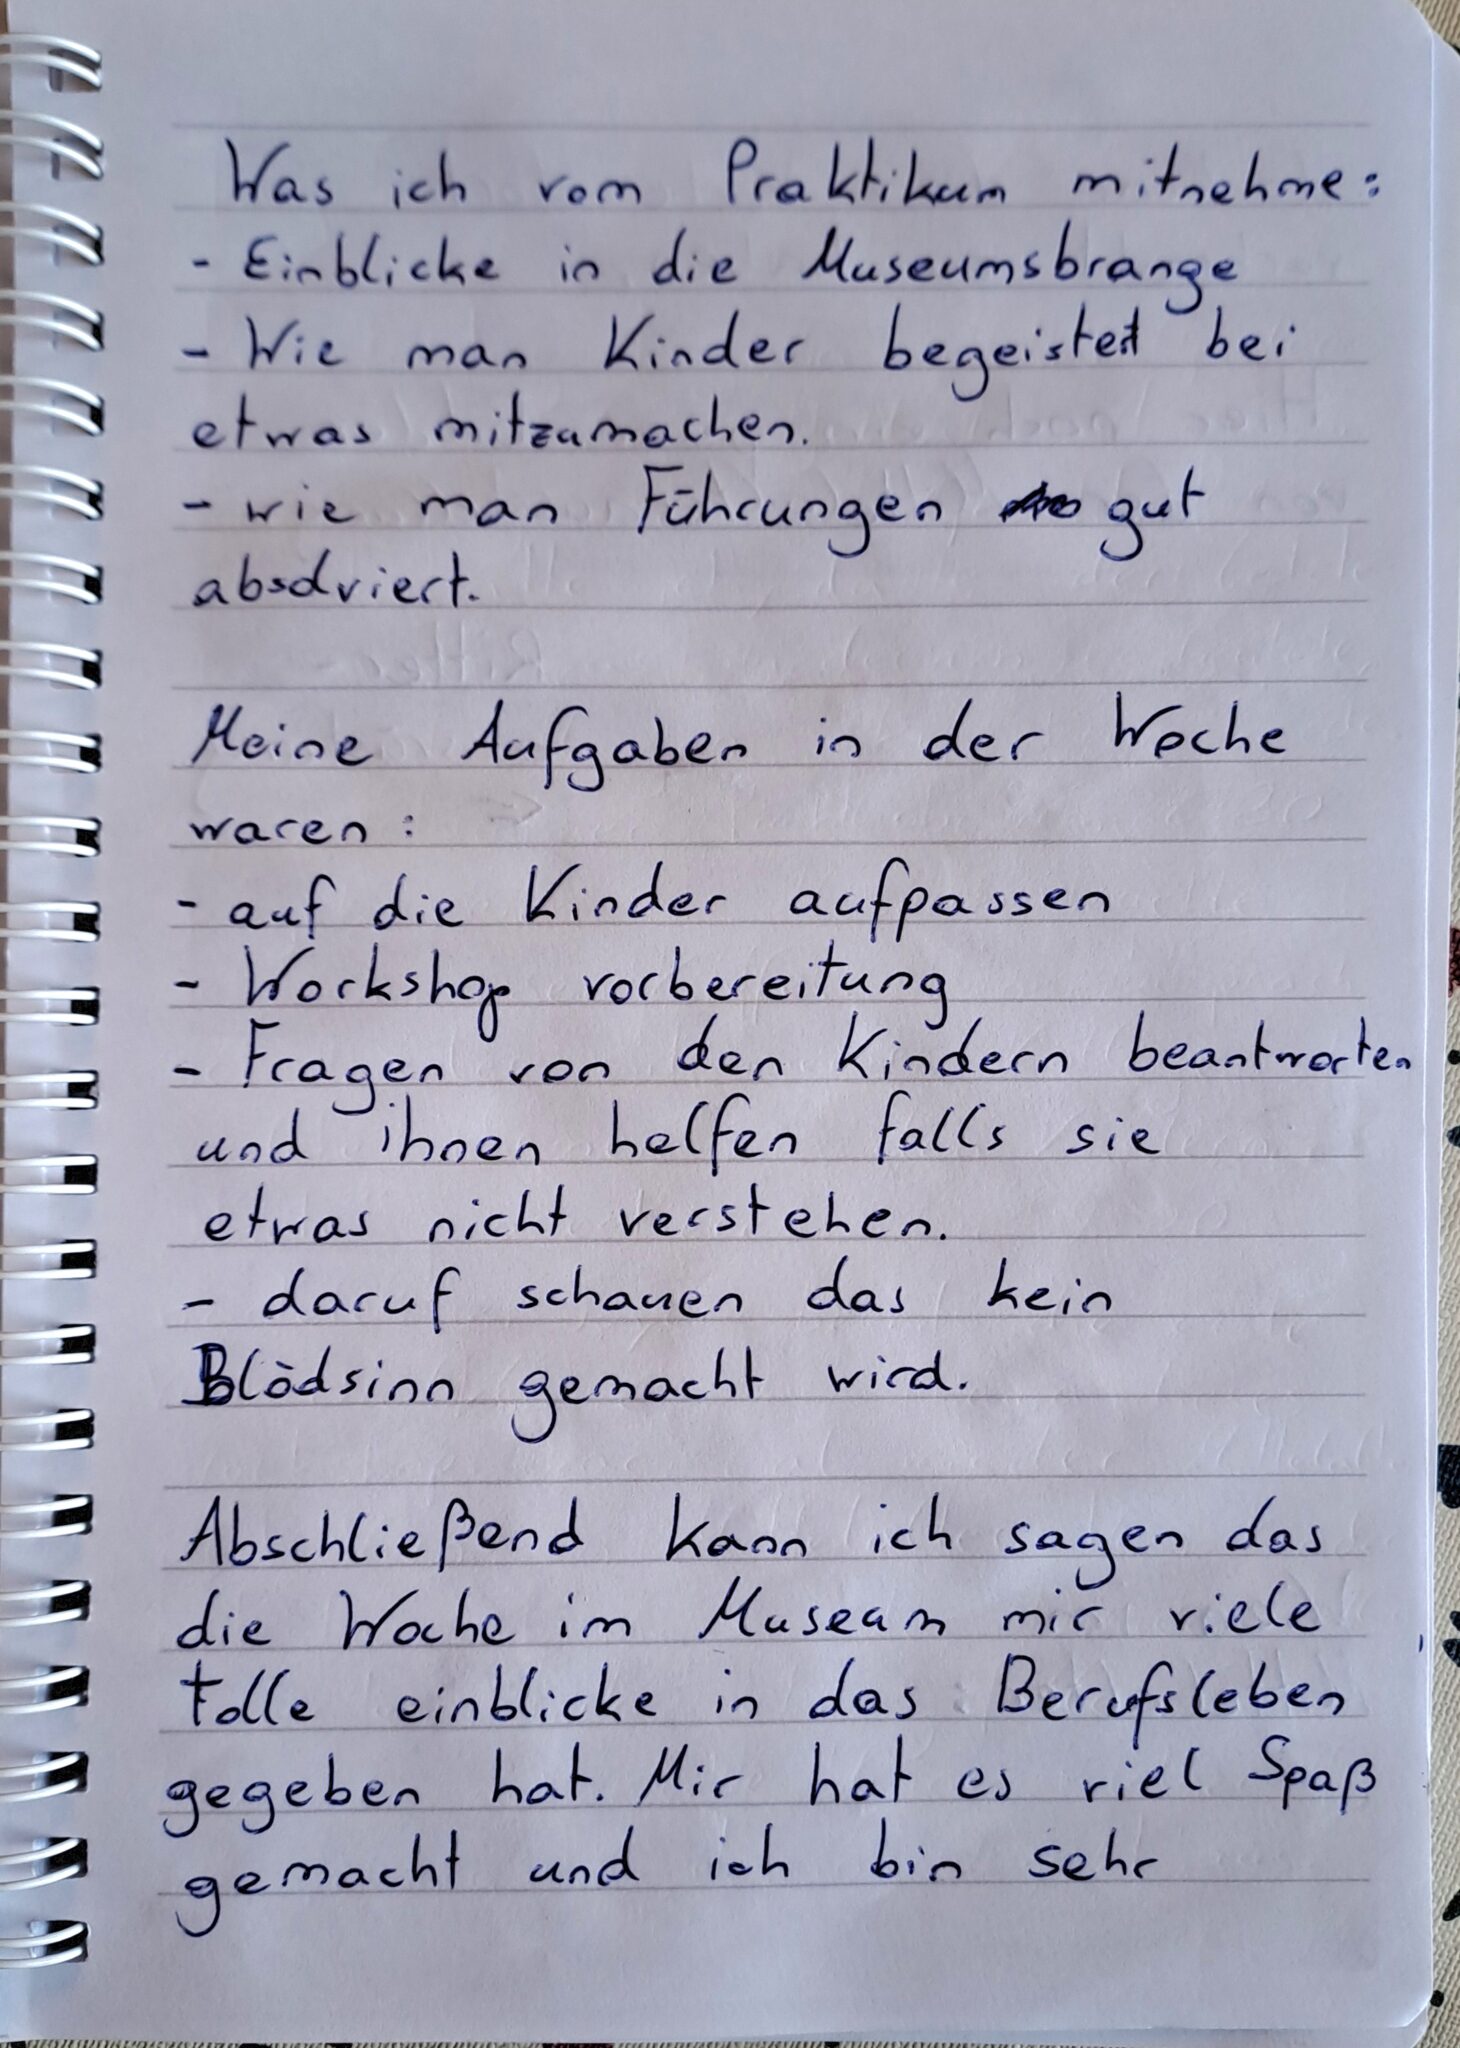 Was ich vom Praktikum mitnehme:
- Einblicke in die Museumsbrange
- Wie man Kinder begeistert bei
etwas mitzumachen.
- wie man Führungen gut
absolviert.
Meine Aufgaben in der Woche
waren:
- auf die Kinder aufpassen
- Workshop vorbereitung
- Fragen von den Kindern beantworten
und ihnen helfen falls sie
etwas nicht verstehen.
- daruf schauen das kein
Blödsinn gemacht wird.
Abschließend kann ich sagen das
die Woche im Museum mir viele
tolle einblicke in das Berufsleben
gegeben hat. Mir hat es viel Spaß
gemacht und ich bin sehr